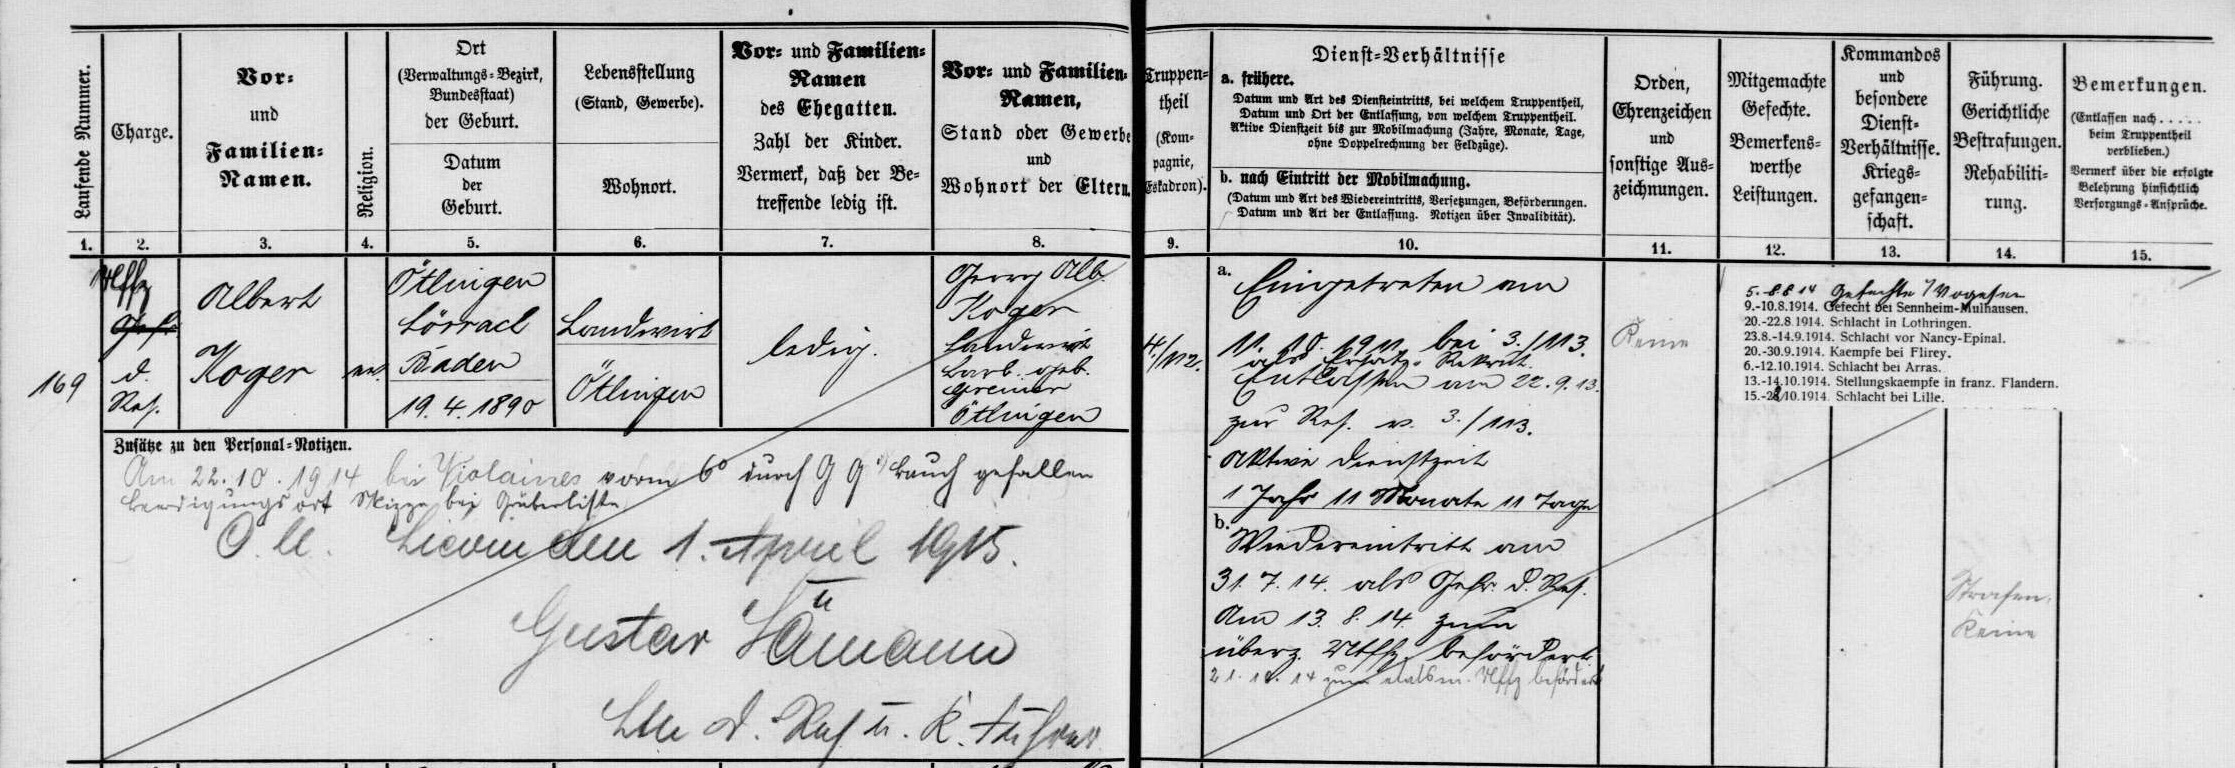 Laufende Nummer.
Charge.
Vor-
und
Familien-
Namen.
Religion.
Ort
(Verwaltungs-Bezirk,
Bundesstaat)
der Geburt.
Datum
der
Geburt.
Lebensstellung
(Stand, Gewerbe).
Wohnort.
Vor- und Familien-
Namen
des Ehegatten.
Zahl der Kinder.
Vermerk, daß der Be-
treffende ledig ist.
Vor- und Familien-
Namen,
Stand oder Gewerbe
und
Wohnort der Eltern.
Truppen-
theil
(Kom-
pagnie,
Eskadron).
Dienst-Verhältnisse
a. frühere.
Datum und Art des Diensteintritts, bei welchem Truppentheil,
Datum und Ort der Entlassung, von welchem Truppentheil.
Aktive Dienstzeit bis zur Mobilmachung (Jahre, Monate, Tage,
ohne Doppelrechnung der Feldzüge).
b. nach Eintritt der Mobilmachung.
(Datum und Art des Wiedereintritts, Versetzungen, Beförderungen.
Datum und Art der Entlassung. Notizen über Invalidität).
Orden,
Ehrenzeichen
und
sonstige Aus-
zeichnungen.
Mitgemachte
Gefechte.
Bemerkens-
werthe
Leistungen.
Kommandos
und
besondere
Dienst-
Verhältnisse.
Kriegs-
gefangen-
schaft.
Führung.
Gerichtliche
Bestrafungen.
Rehabiliti-
rung.
Bemerkungen.
(Entlassen nach . . . . .
beim Truppentheil
verblieben.)
Vermerk über die erfolgte
Belehrung hinsichtlich
Versorgungs-Ansprüche.
1. 2. 3. 4. 5. 6. 7. 8. 9. 10. 11. 12. 13. 14. 15.
169
Utffz
Gefr.
d.
Res.
Albert
Koger
ev.
Ötlingen
Lörrach
Baden
19. 4. 1890
Landwirt
Ötlingen
ledig.
Georg Alb.
Koger
Landwirt
Barb. geb.
Greiner
Ötlingen
4./112.
a. Eingetreten am
11. 10. 1911. bei 3./113.
als Ersatz-Rekrut.
Entlassen am 22. 9. 13.
zur Res. v. 3./113.
Aktive Dienstzeit
1 Jahr 11 Monate 11 Tage
b.
Wiedereintritt am
31. 7. 14. als Gefr. d. Res.
Am 13. 8. 14. zum
überz. Utffz. befördert
21. 10. 14 zum etatsm. Utffz befördert
Keine
5.-8.8 14 Gefechte i/Vogesen
9.-10.8.1914. Gefecht bei Sennheim-Mulhausen.
20.-22.8.1914. Schlacht in Lothringen.
23.8.-14.9.1914. Schlacht vor Nancy-Epinal.
20.-30.9.1914. Kaempfe bei Flirey.
6.-12.10.1914. Schlacht bei Arras.
13.-14.10.1914. Stellungskaempfe in franz. Flandern.
15.-28.10.1914. Schlacht bei Lille.
Strafen:
Keine
Zusätze zu den Personal-Notizen.
Am 22. 10. 1914 bei Violaines vorm 6° durch G G i/Bauch gefallen
Beerdigungsort Skizze bei Gräberliste
O. U. den 1. April 1915.
Gustav
Ltn d. Res u. K. Führer